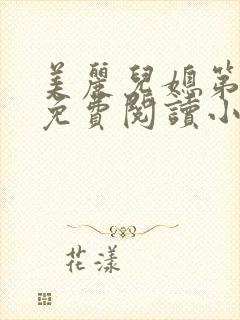 美麗兒媳第
免費閱讀小
花漾